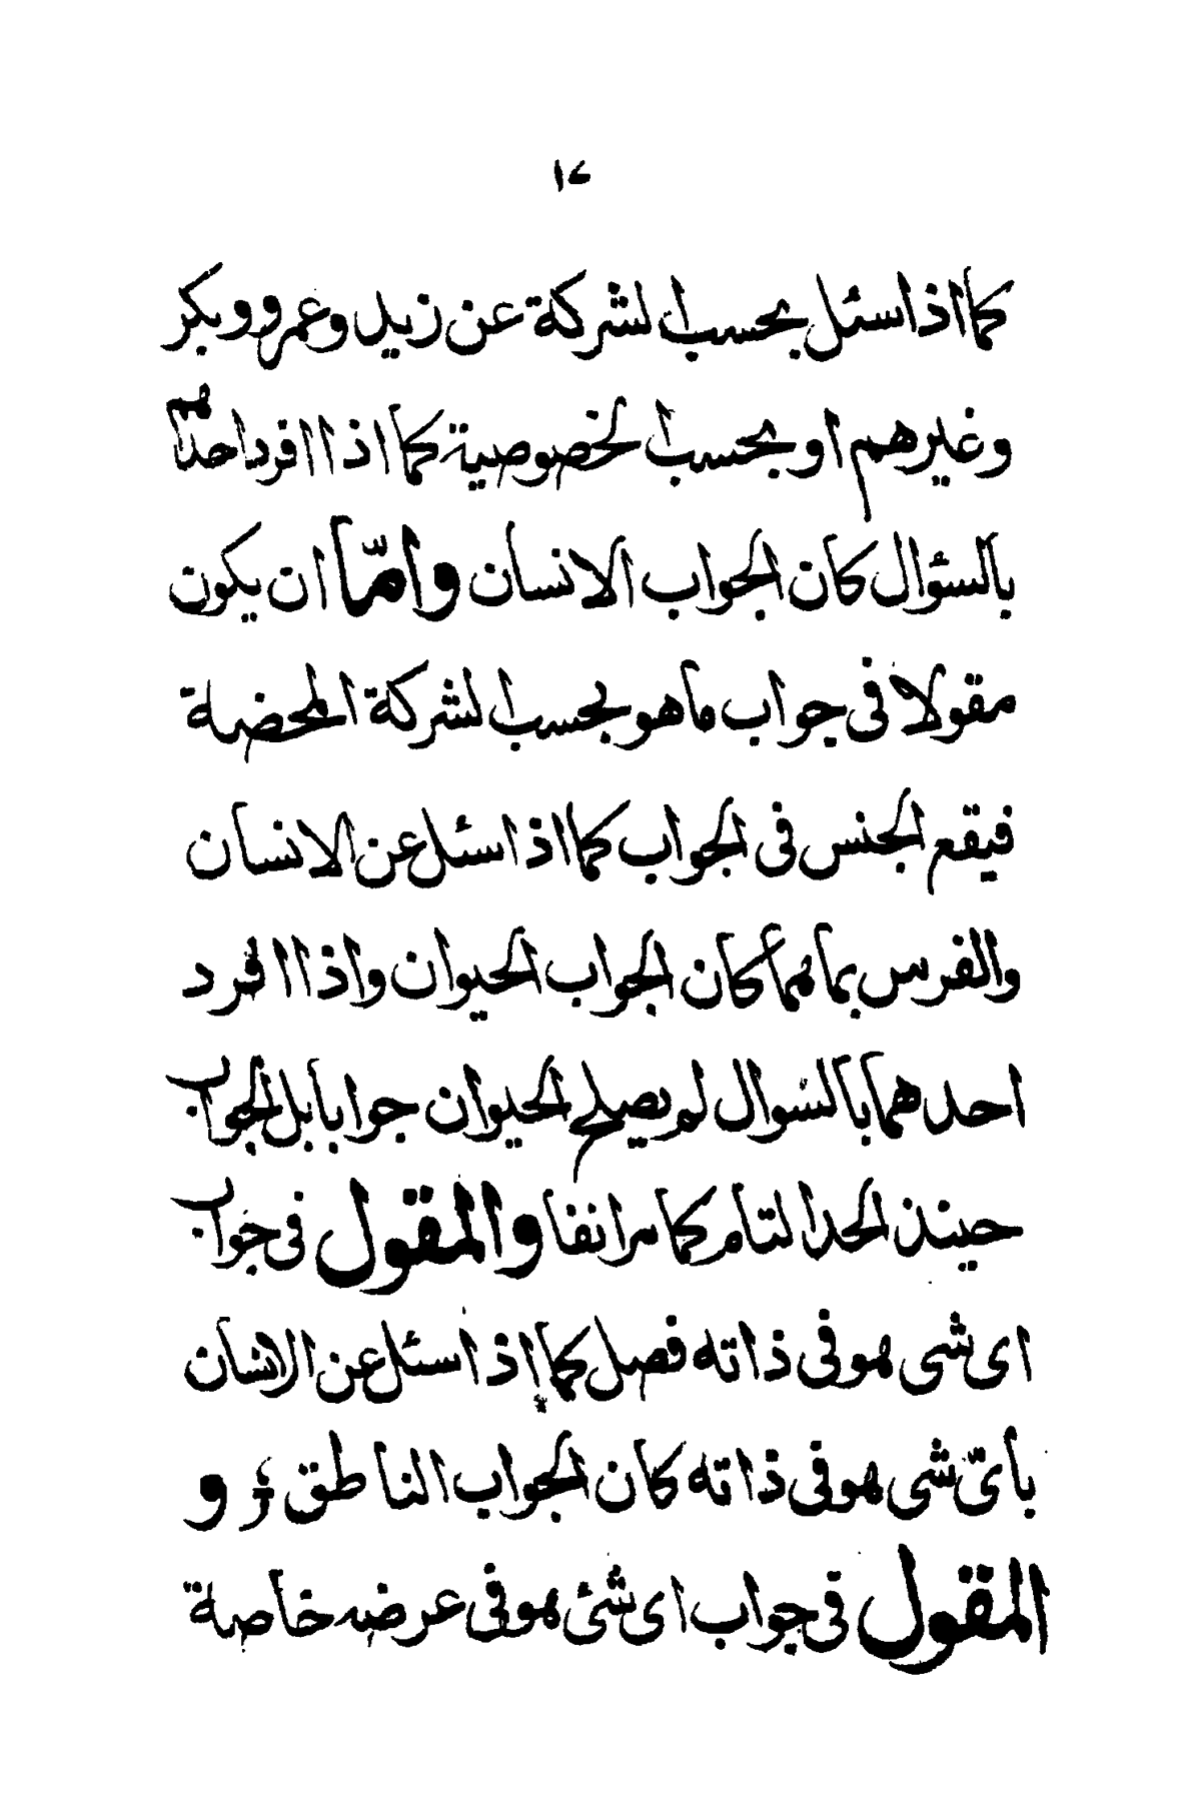 ١٧
كما اذا سئل بحسب الشركة عن زيد وعمرو وبكر
وغيرهم او بحسب الخصوصية كما اذا افرد احدهم
بالسؤال كان الجواب الانسان وامّا ان يكون
مقولا فى جواب ما هو بحسب الشركة المحضة
فيقع الجنس فى الجواب كما اذا سئل عن الانسان
والفرس بما هما كان الجواب الحيوان واذا افرد
احدهما بالسوال لم يصلح الحيوان جوابا بل الجواب
حينئذ الحد التام كما مر انفا والمقول فى جواب
اى شى هو فى ذاته فصل كما إذا سئل عن الانسان
باىّ شى هو فى ذاته كان الجواب الناطق ؛ و
المقول فى جواب اى شئ هو فى عرضه خاصة